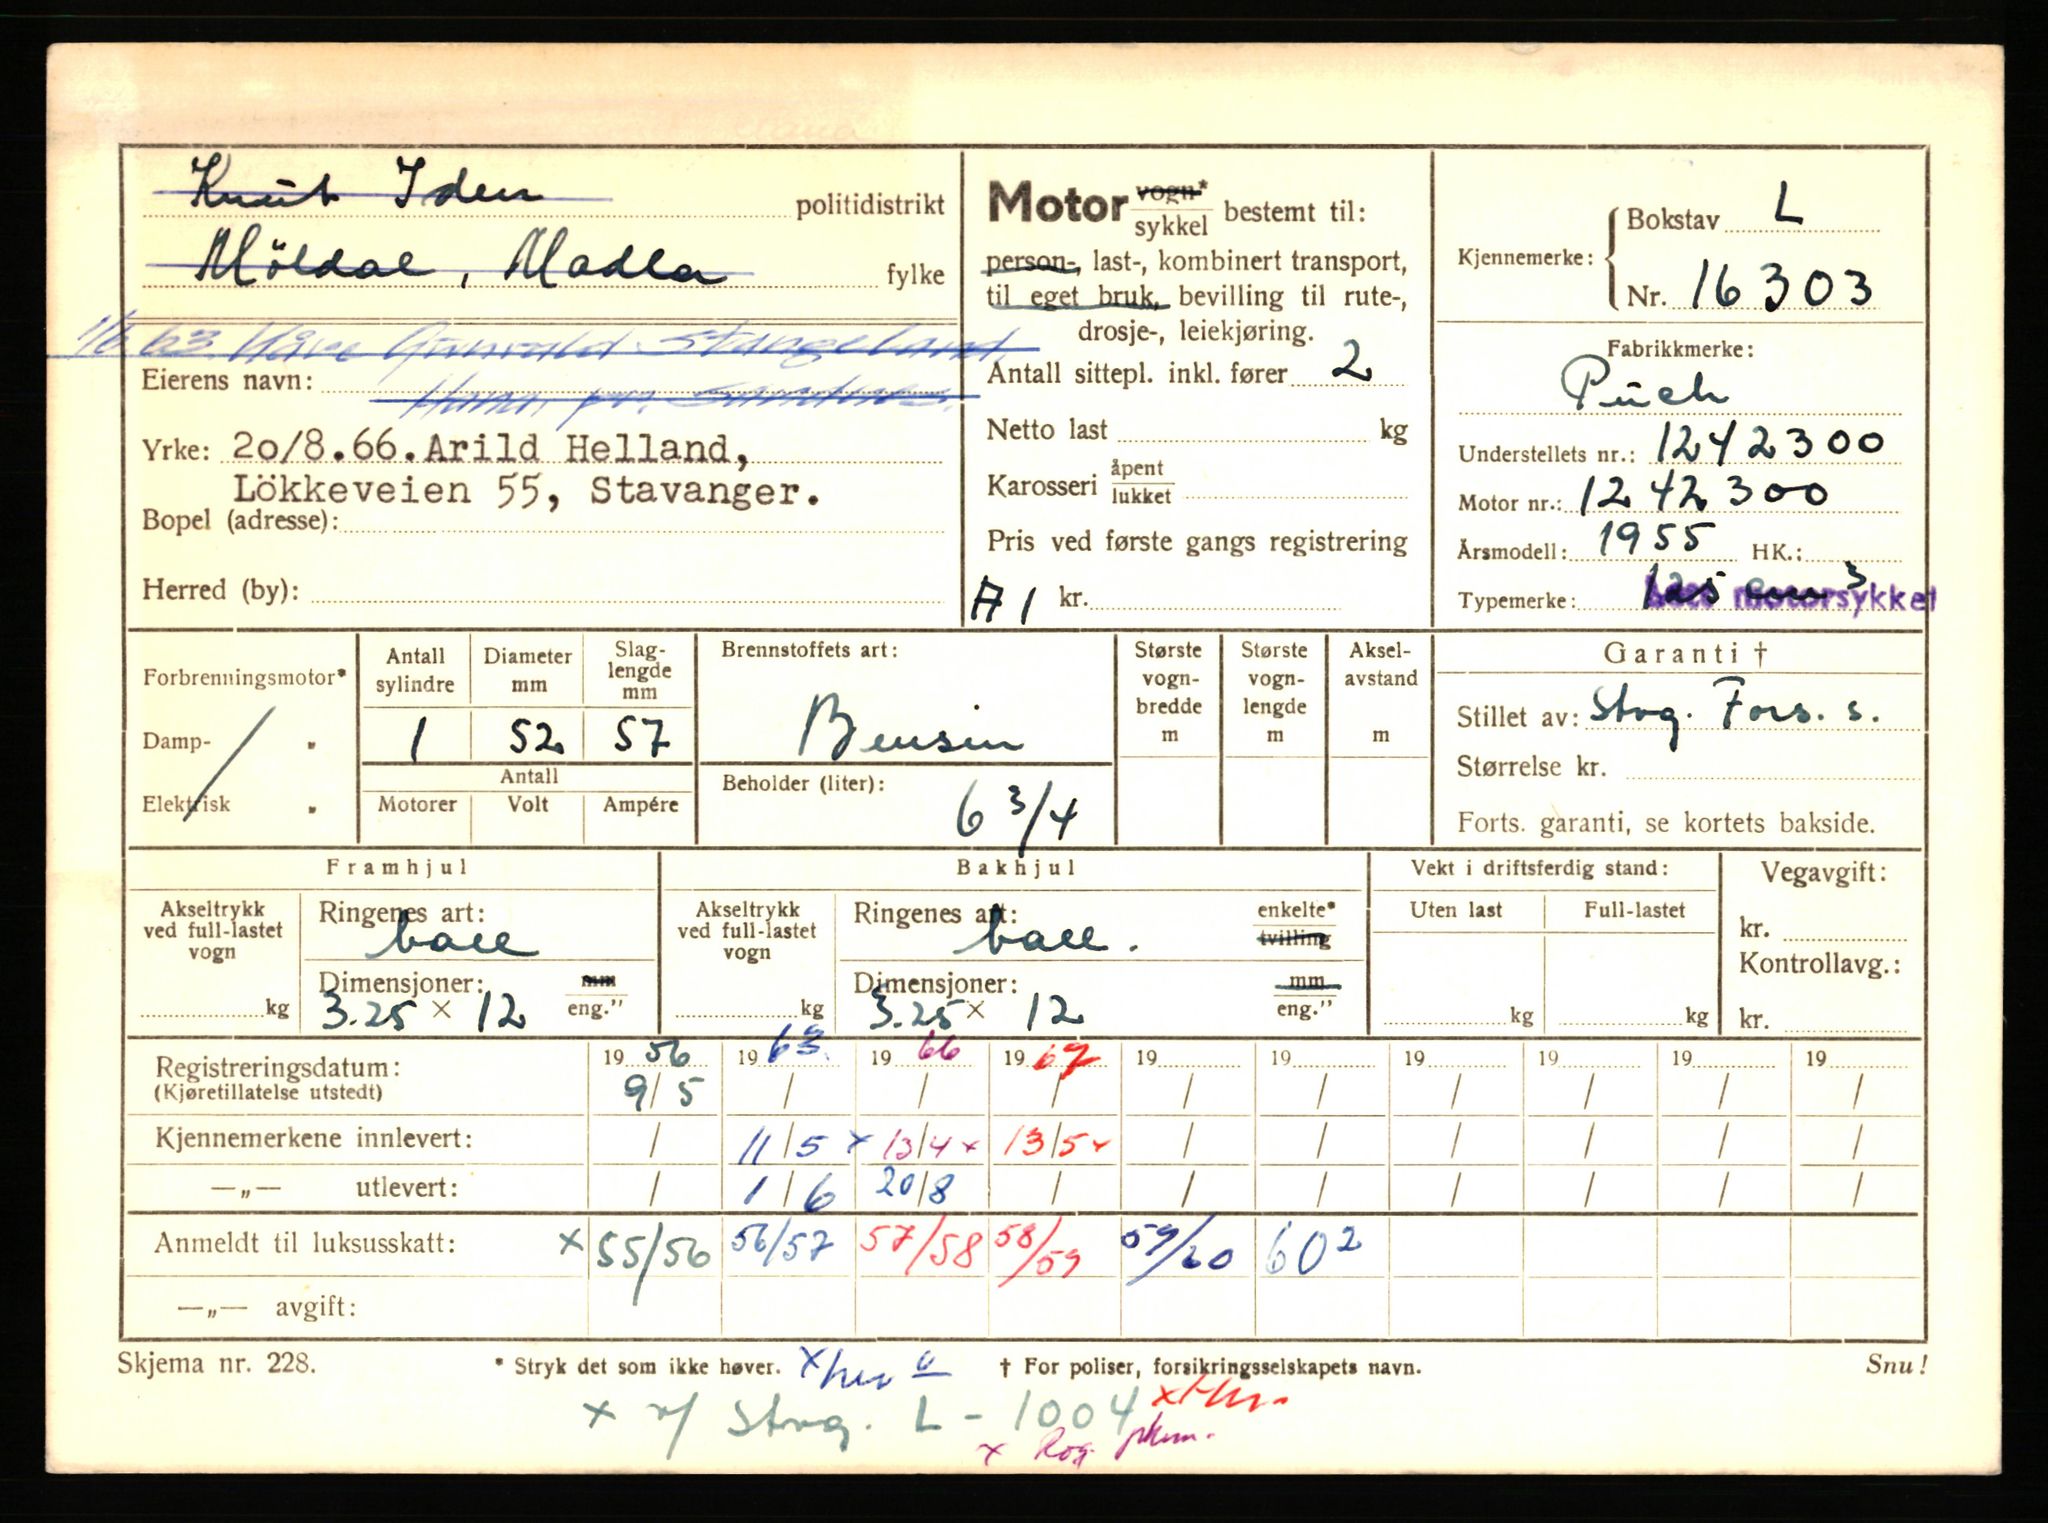 Knut Iden politidistrikt
Möldal, Madla fylke
1/6 63 Kåre Gunvald Stangeland
Eierens navn: Hana, pr. Sandnes.
Yrke: 20/8.66. Arild Helland,
Lökkeveien 55, Stavanger.
Bopel (adresse):
Herred (by):
Motor vogn* / sykkel bestemt til:
person-, last-, kombinert transport,
til eget bruk, bevilling til rute-,
drosje-, leiekjøring.
Antall sittepl. inkl. fører 2
Netto last kg
Karosseri åpent / lukket
Pris ved første gangs registrering
A1 kr.
Kjennemerke: Bokstav L
Nr. 16303
Fabrikkmerke:
Puch
Understellets nr.: 1242300
Motor nr.: 1242300
Årsmodell: 1955 HK.:
Typemerke: 125 cm3 motorsykkel
Forbrenningsmotor*
Damp- "
Elektrisk "
Antall sylindre Diameter mm Slaglengde mm
1 52 57
Antall
Motorer Volt Ampére
Brennstoffets art:
Bensin
Beholder (liter):
6 3/4
Største vognbredde m
Største vognlengde m
Akselavstand m
Garanti †
Stillet av: Stvg. Fors. s.
Størrelse kr.
Forts. garanti, se kortets bakside.
Framhjul
Akseltrykk ved full-lastet vogn kg
Ringenes art:
ball
Dimensjoner: mm / eng."
3.25 x 12
Bakhjul
Akseltrykk ved full-lastet vogn kg
Ringenes art: enkelte* / tvilling
ball.
Dimensjoner: mm / eng."
3.25 x 12
Vekt i driftsferdig stand:
Uten last Full-lastet
kg kg
Vegavgift:
kr.
Kontrollavg.:
kr.
Registreringsdatum: 19 56 19 63. 19 66 19 67 19 19 19 19 19 19
(Kjøretillatelse utstedt) 9/5 / / / / / / / / /
Kjennemerkene innlevert: / 11/5 x 13/4 x 13/5 x / / / / / /
—„— utlevert: / 1/6 20/8 / / / / / / /
Anmeldt til luksusskatt: x 55/56 56/57 57/58 58/59 59/60 60 2
—„— avgift:
Skjema nr. 228. * Stryk det som ikke høver. † For poliser, forsikringsselskapets navn. Snu!
x v/ Stvg. L - 1004
x Rog.